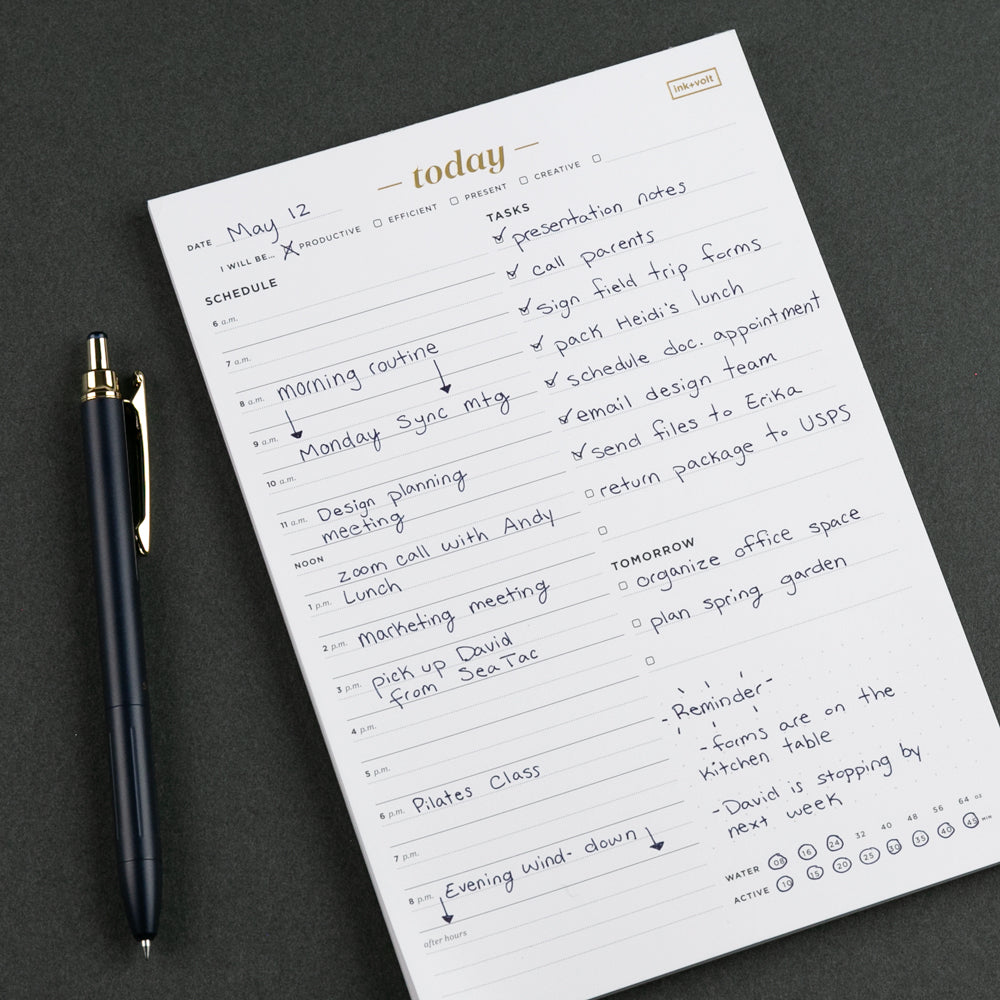 ink+volt
today
DATE May 12
I WILL BE... PRODUCTIVE EFFICIENT PRESENT CREATIVE
SCHEDULE
6 a.m.
7 a.m.
8 a.m. morning routine
9 a.m. Monday Sync mtg
10 a.m.
11 a.m. Design planning
meeting
NOON zoom call with Andy
1 p.m. Lunch
2 p.m. marketing meeting
3 p.m. pick up David
from SeaTac
4 p.m.
5 p.m.
6 p.m. Pilates Class
7 p.m.
8 p.m. Evening wind-down
after hours
TASKS
presentation notes
call parents
sign field trip forms
pack Heidi's lunch
schedule doc. appointment
email design team
send files to Erika
return package to USPS
TOMORROW
organize office space
plan spring garden
-Reminder-
-forms are on the
kitchen table
-David is stopping by
next week
WATER 08 16 24 32 40 48 56 64 OZ
ACTIVE 10 15 20 25 30 35 40 45 MIN